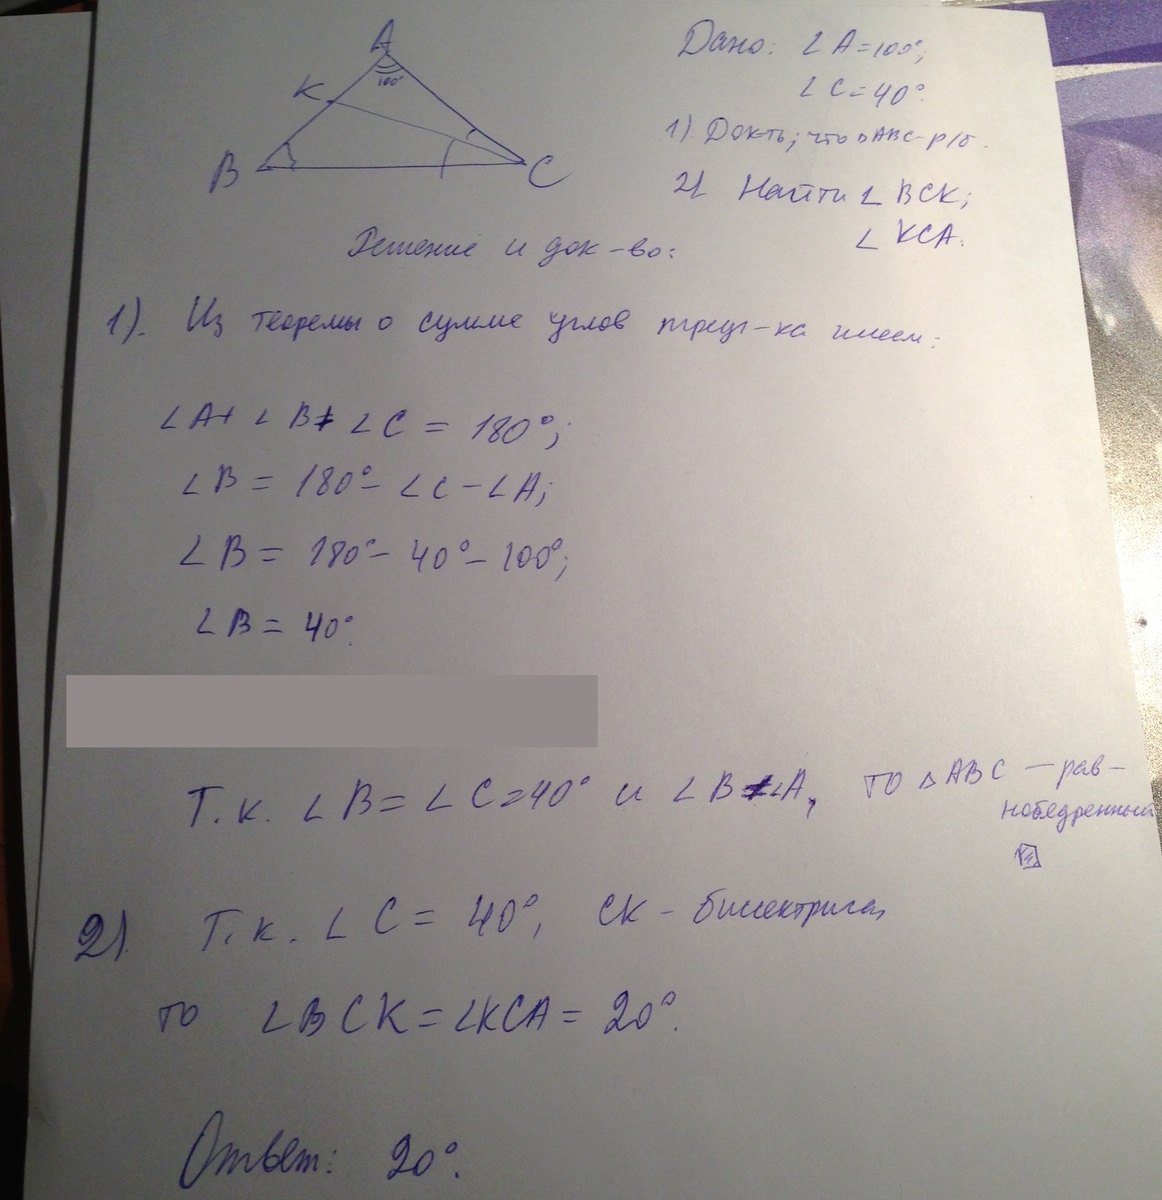 A
100°
K
B
C
Дано: ∠A=100°;
∠C=40°.
1). Док-ть, что △ABC-р/б.
2) Найти ∠BCK;
∠KCA.
Решение и док-во:
1). Из теоремы о сумме углов треуг-ка имеем:
∠A+∠B+∠C = 180°;
∠B = 180°-∠C-∠A;
∠B = 180°-40°-100°;
∠B = 40°.
Т.к. ∠B=∠C=40° и ∠B≠∠A, то △ABC —рав-
нобедренный
2). Т.к. ∠C = 40°, CK - биссектриса,
то ∠BCK=∠KCA= 20°.
Ответ: 20°.